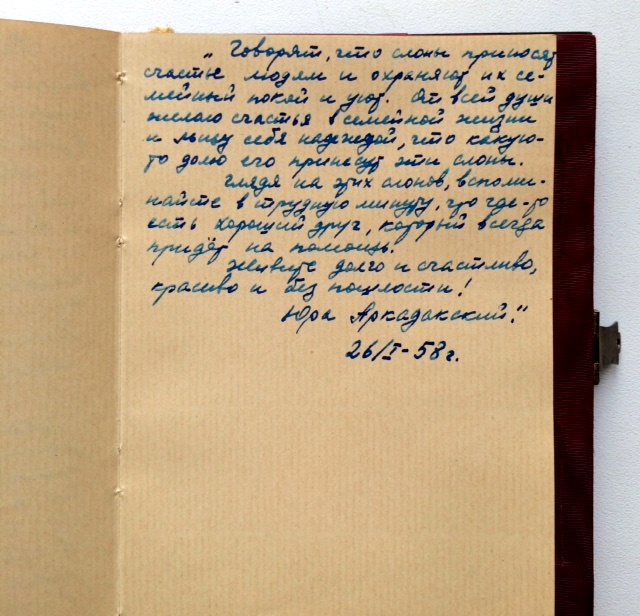 „ Говорят, что слоны приносят
счастье людям и охраняют их се-
мейный покой и уют. От всей души
желаю счастья в семейной жизни
и льщу себя надеждой, что какую-
то долю его принесут эти слоны.
Глядя на этих слонов, вспоми-
найте в трудную минуту, что где-то
есть хороший друг, который всегда
придёт на помощь.
Живите долго и счастливо,
красиво и без пошлости!
Юра Аркадакский."
26/I-58г.